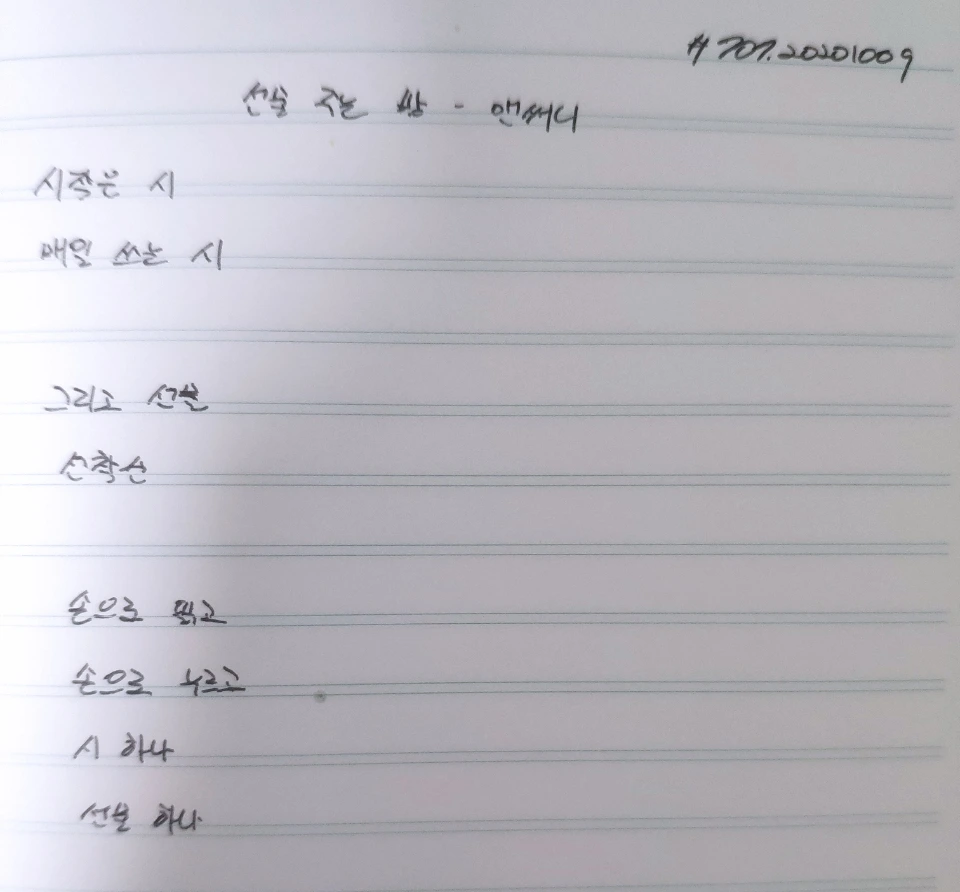 #707.20201009
선물 주는 방 - 앤써니
시작은 시
매일 쓰는 시
그리고 선물
선착순
손으로 찍고
손으로 누르고
시 하나
선물 하나